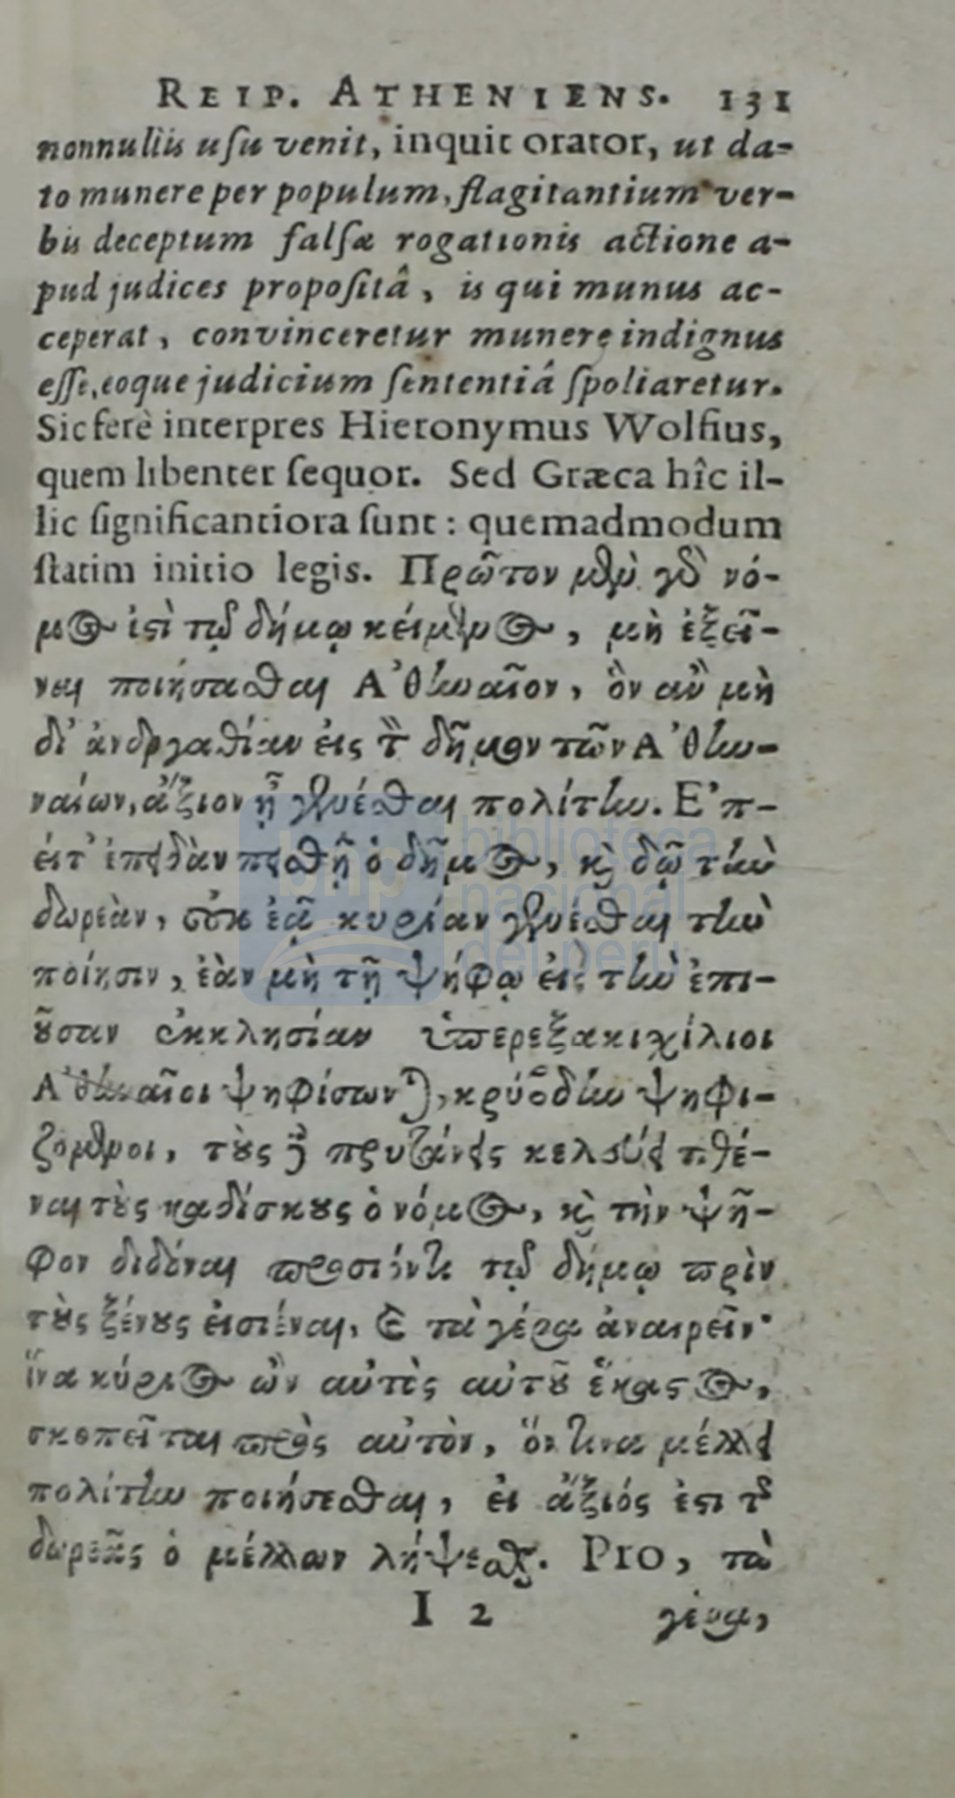 REIP. ATHENIENS. 131
nonnullis usu venit, inquit orator, ut da-
to munere per populum, flagitantium ver-
bis deceptum falsæ rogationis actione a-
pud judices propositâ, is qui munus ac-
ceperat, convinceretur munere indignus
esse, eoque judicium sententiâ spoliaretur.
Sic ferè interpres Hieronymus Wolfius,
quem libenter sequor. Sed Græca hîc il-
lic significantiora sunt: quemadmodum
statim initio legis. Πρῶτον μὲν γδ νό-
μος ἐςὶ τῷ δήμῳ κείμενος, μὴ ἐξεῖ-
ναι ποιήσαθαι Ἀθηναῖον, ὃν ἂν μὴ
δι' ἀνδργαθίαν εἰς τ δῆμον τῶν Ἀθη-
ναίων, ἄξιον ᾖ γενέθαι πολίτην. Ἔπ-
ειτ' ἐπειδὰν πειθῇ ὁ δῆμος, κὶ δῷ τὴν
δωρεὰν, οὐκ ἐᾷ κυρίαν γενέθαι τὴν
ποίησιν, ἐὰν μὴ τῇ ψήφῳ εἰς τὴν ἐπι-
ȣ̃σαν ἐκκλησίαν ὑπερεξακιχίλιοι
Ἀθηναῖοι ψηφίσωνται, κρύβδην ψηφι-
ζόμενοι, τȣ̀ς δὲ πρυτάνεις κελεύει τιθέ-
ναι τȣ̀ς καδίσκȣς ὁ νόμος, κὶ τὴν ψῆ-
φον διδόναι προσιόντι τῷ δήμῳ πρὶν
τȣ̀ς ξένȣς εἰσιέναι, καὶ τὰ γέρρα ἀναιρεῖν·
ἵνα κύριος ὢν αὐτὸς αὑτȣ̃ ἕκαςος,
σκοπεῖται πρὸς αὐτὸν, ὅντινα μέλλει
πολίτην ποιήσεθαι, εἰ ἄξιός ἐςι τ
δωρεᾶς ὁ μέλλων λήψεθαι. Pro, τὰ
I 2 γέρρα,
bnp biblioteca
nacional
del perú